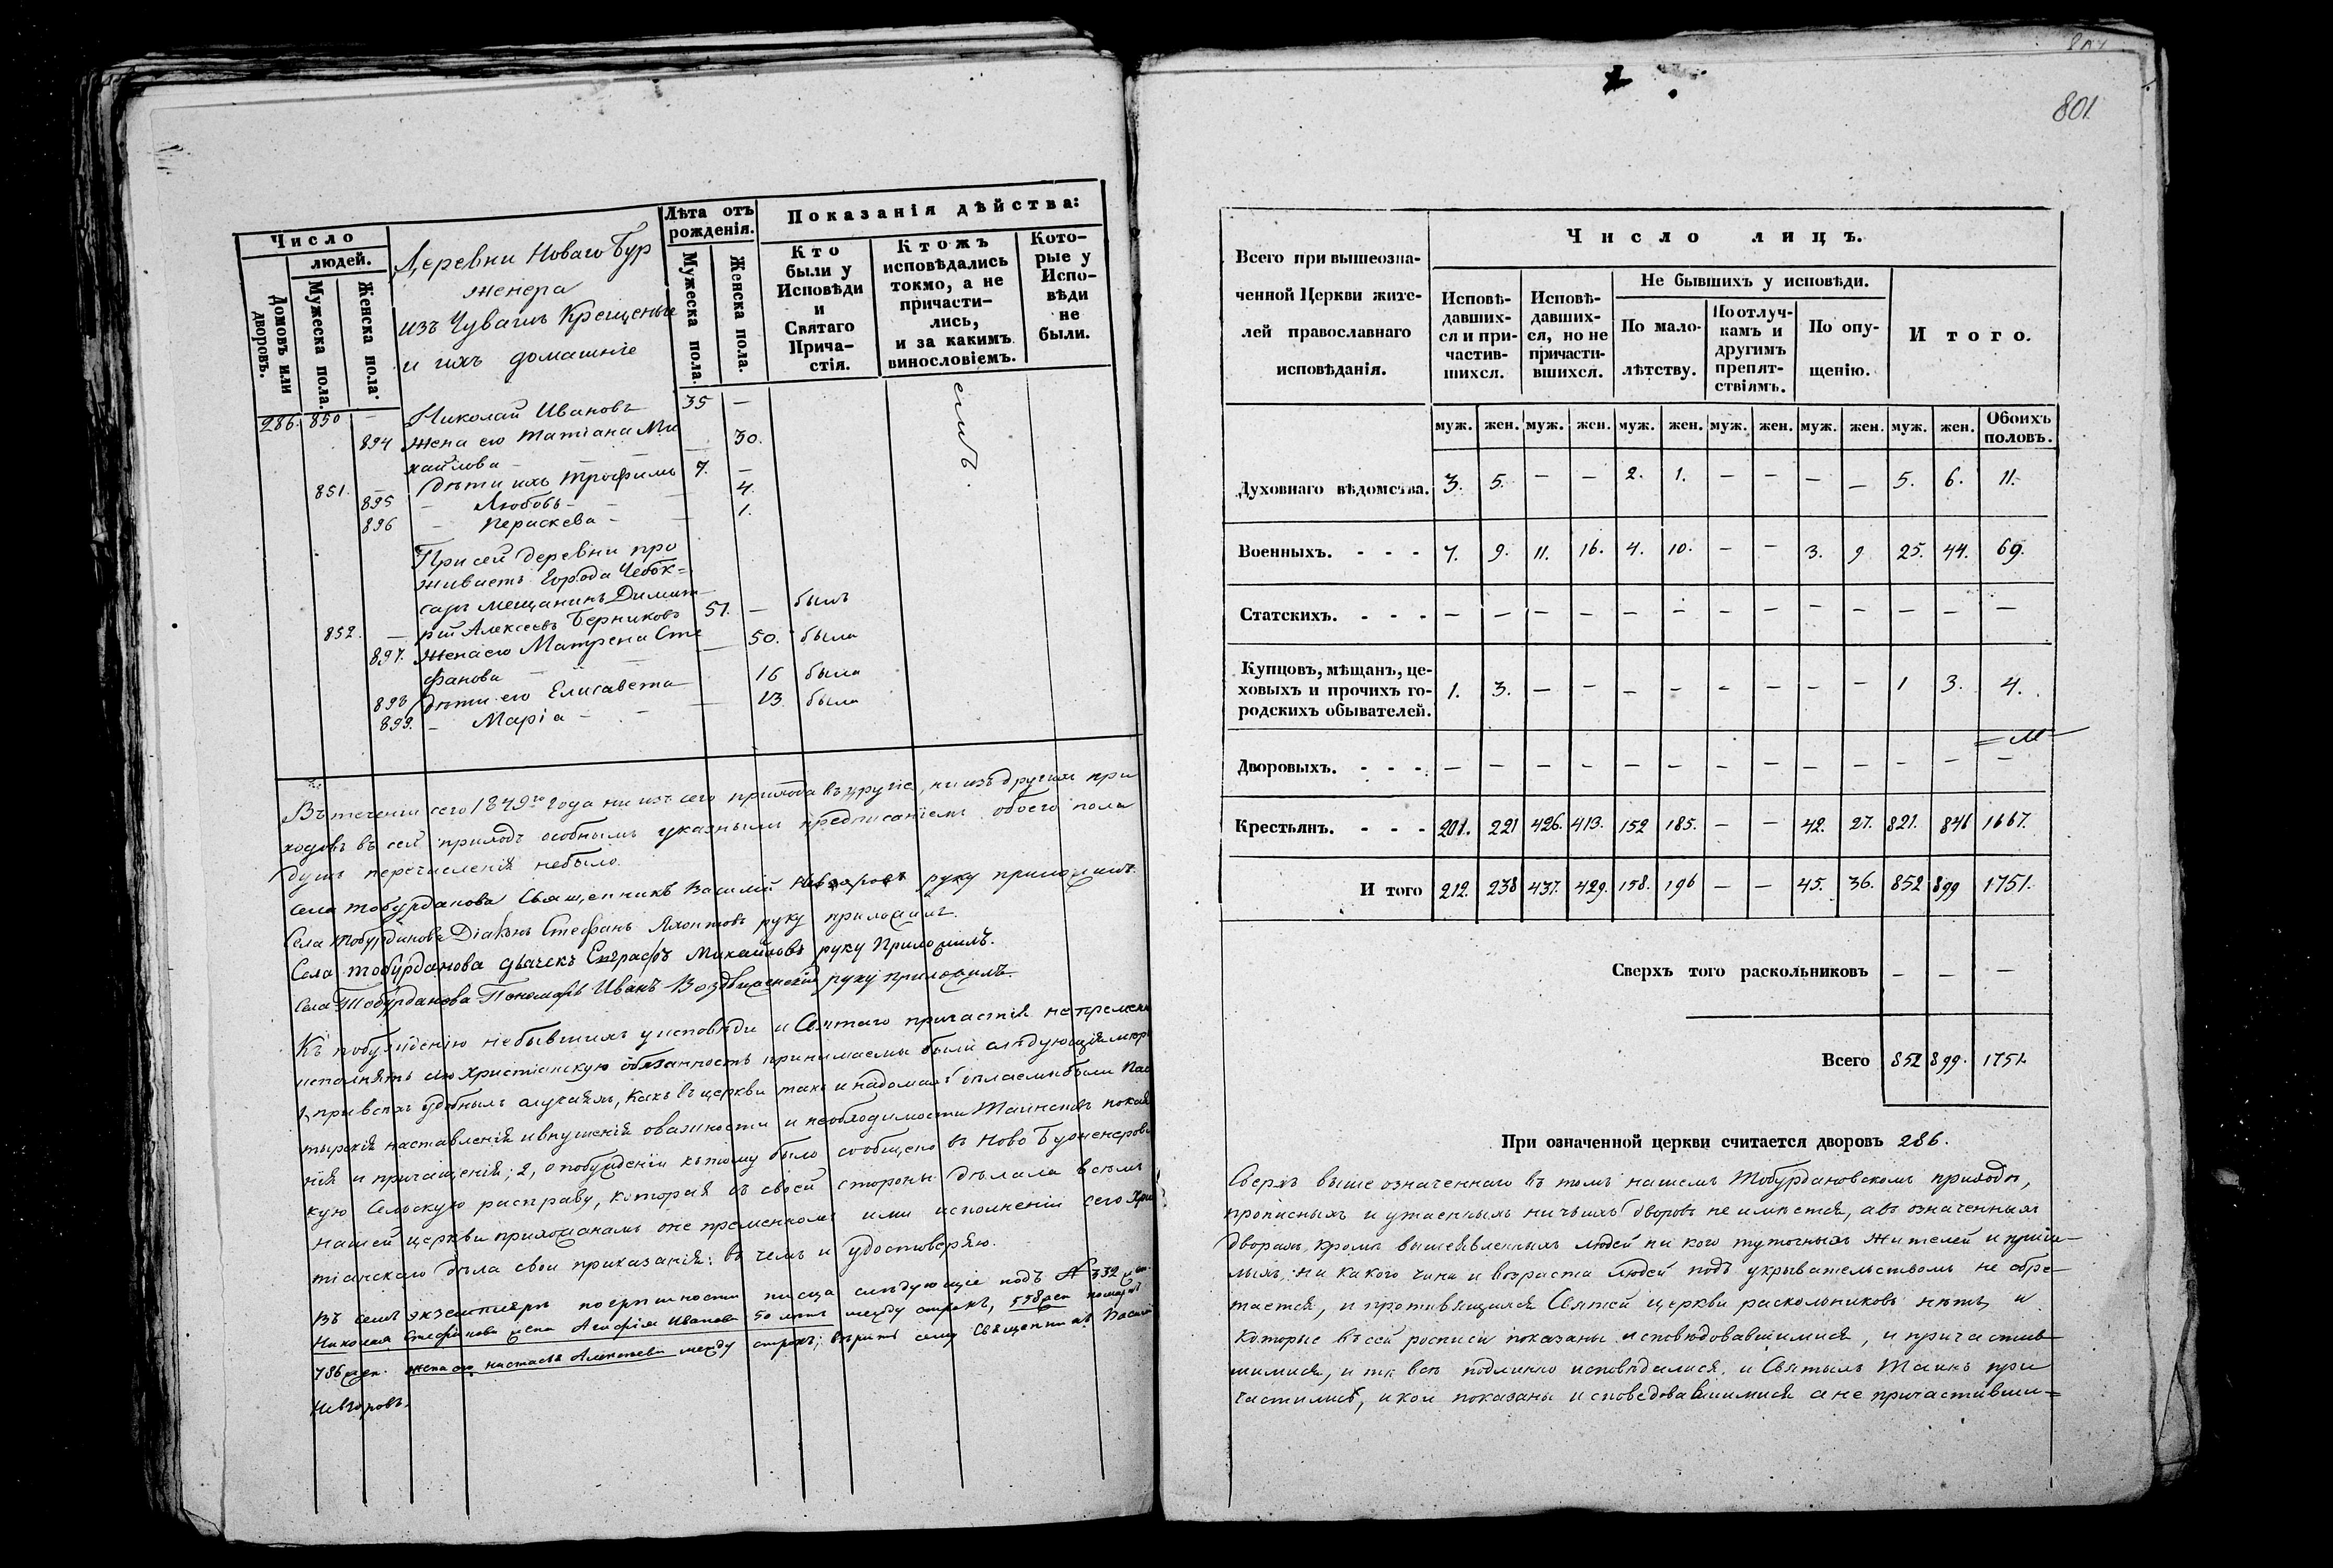 Число
людей.
Домовъ или дворовъ.
Мужеска пола.
Женска пола.
Деревни Новаго Бур
женера
изъ Чувашъ Крещеные
и ихъ домашніе
Лѣта отъ рожденія.
Мужеска пола.
Женска пола.
Показанія дѣйства:
Кто были у Исповѣди и Святаго Причастія.
Ктожъ исповѣдались токмо, а не причастились, и за какимъ винословіемъ.
Которые у Исповѣди не были.
286. 850 — Николай Ивановъ 35 —
894 жена его Татіана Ми — 30.
хайлова — — —
851. — дѣти ихъ Трофимъ 7. —
895 — Любовь — — 4.
896 — Параскева — — 1.
При сей деревни про
живаетъ Города Чебок=
саръ мещанинъ Димит
852. — рій Алексеевъ Берниковъ 51. — былъ
897. Жена его Матрена Сте — 50. была
фанова — — —
898 дѣти его Елисавета 16 была
899. — Марія — — 13. была
Въ теченіи сего 1849го года ни изъ сего прихода въ другіе, ни изъ другихъ при
ходовъ въ сей приходъ особнымъ указнымъ предписаніемъ обоего пола
душъ перечисленія небыло.
Села Тобурданова Священникъ Василій Невзоровъ руку приложилъ.
Села Тобурданова Діаконъ Стефанъ Яхонтовъ руку приложилъ.
Села Тобурданова дьячекъ Евграфъ Михайловъ руку Приложилъ.
Села Тобурданова Пономарь Иванъ Воздвиженскій руку приложилъ.
Къ побужденію небывшихъ у исповѣди и Святаго причастія непременно
исполнять сію Христіанскую обязанность принимаемы были слѣдующія мѣры
1, при всехъ удобныхъ случаяхъ, какъ въ церкви такъ и на домахъ делаемы были Пас
тырскія наставленія и внушенія о важности и необходимости Таинствъ покая
нія и причащенія; 2, о побужденіи къ тому было сообщено въ Ново Бурженеровс
кую Сельскую расправу, которая съ своей стороны дѣлала всемъ
нашей церкви прихожанамъ о непременномъ ими исполненіи сего Хрис
тіанскаго дѣла свои приказанія: въ чемъ и удостоверяю.
Въ семъ экземпляре по ошибности писца следующіе подъ № 332 жен.
Николая Стефанова жена Агафія Иванова 50 летъ между строкъ, 558 жен
786 жен. жена его Настасья Алексеева между строкъ; верить сему Священникъ Василій
Невзоровъ.
801
Всего при вышеозначенной Церкви жителей православнаго исповѣданія.
Число лицъ.
Исповѣдавшихся и причастившихся.
Исповѣдавшихся, но не причастившихся.
Не бывшихъ у исповѣди.
По малолѣтству.
По отлучкамъ и другимъ препятствіямъ.
По опущенію.
Итого.
муж. жен. муж. жен. муж. жен. муж. жен. муж. жен. муж. жен. Обоихъ половъ.
Духовнаго вѣдомства. 3. 5. — — 2. 1. — — — — 5. 6. 11.
Военныхъ. - - - 7. 9. 11. 16. 4. 10. — — 3. 9 25. 44. 69.
Статскихъ. - - - — — — — — — — — — — — — —
Купцовъ, мѣщанъ, цеховыхъ и прочихъ городскихъ обывателей. 1. 3. — — — — — — — — 1 3. 4.
Дворовыхъ. - - - — — — — — — — — — — — — —
Крестьянъ. - - - 201. 221 426. 413. 152 185. — — 42. 27. 821. 846 1667.
И того 212. 238 437. 429. 158. 196 — — 45. 36. 852 899 1751.
Сверхъ того раскольниковъ — — —
Всего 852 899. 1751.
При означенной церкви считается дворовъ 286.
Сверхъ выше означеннаго въ томъ нашемъ Тобурдановскомъ приходѣ,
прописныхъ и утаенныхъ ничьихъ дворовъ не имѣется, а въ означенныхъ
дворахъ, кроме вышеявленныхъ людей ни кого туточныхъ жителей и приш—
лыхъ, ни какого чина и возраста людей подъ укрывательствомъ не обре—
тается, и противящихся Святей церкви раскольниковъ нѣтъ, и
которые въ сей росписи показаны исповѣдовавшимися, и причастив—
шимися, и те все подлинно исповѣдалися, и Святыхъ Таинъ при
частились, и кои показаны исповедовавшимися а не причастивши=